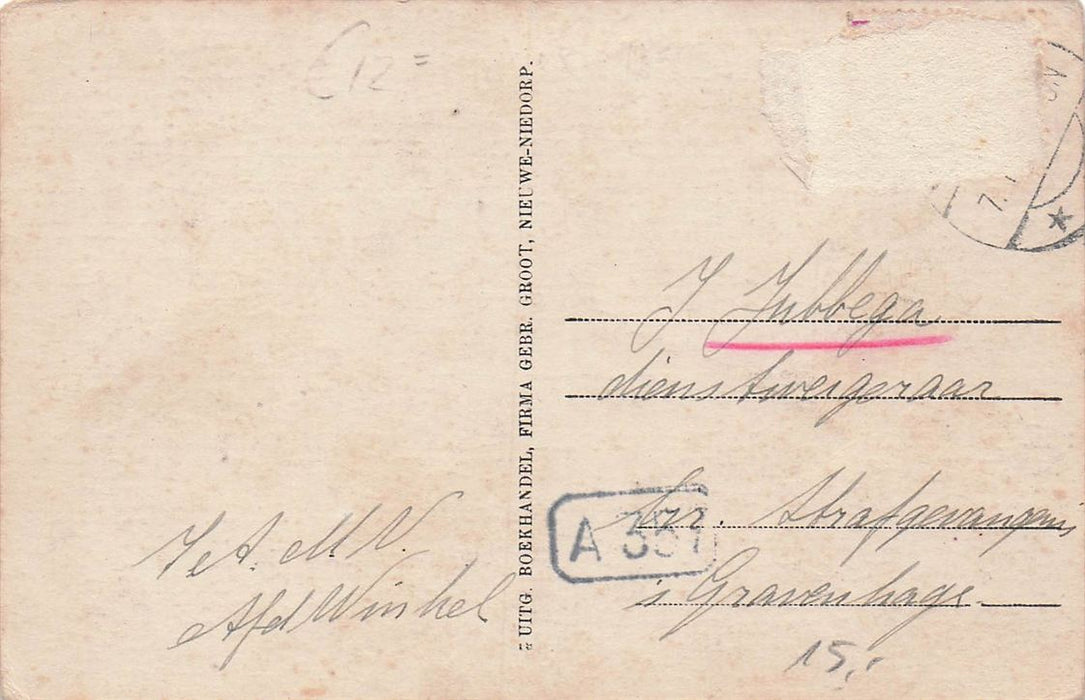 € 12 =
UITG. BOEKHANDEL, FIRMA GEBR. GROOT, NIEUWE-NIEDORP.
7.
J Jubbega
dienstweigeraar
Strafgevangenis
A 351
's Gravenhage.
J et A. M V.
Afd Winkel
15,-